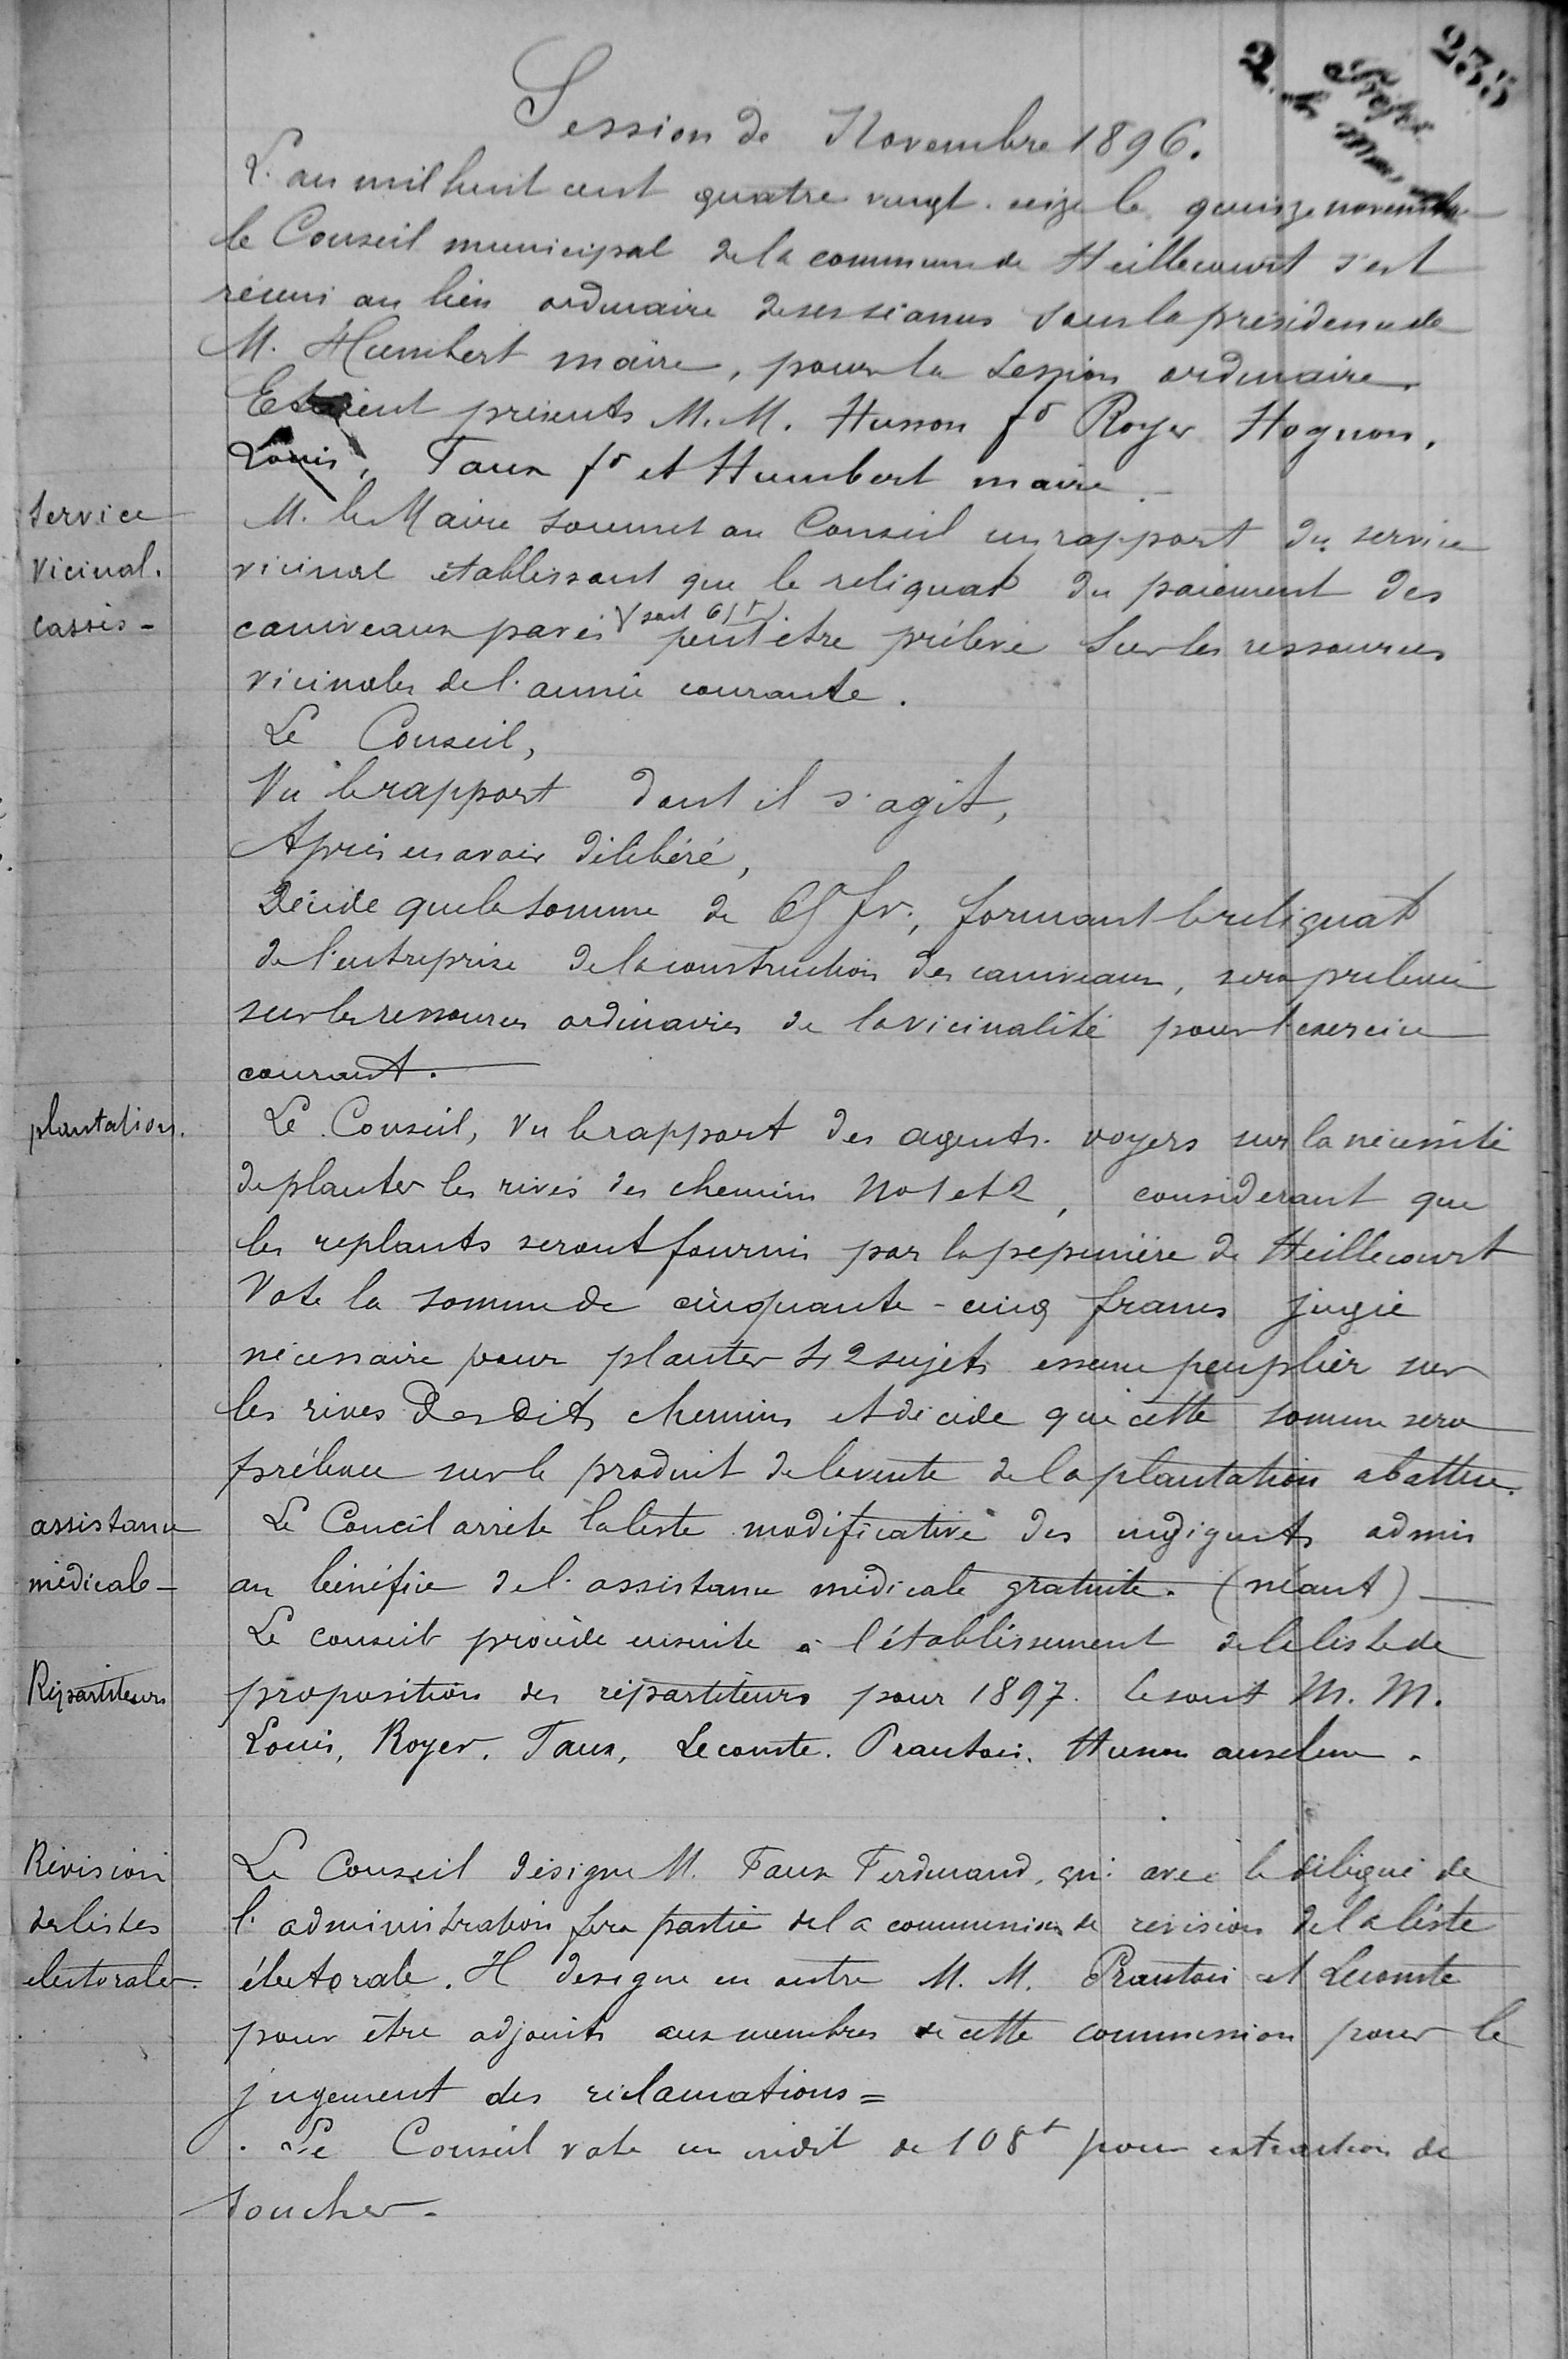 235
2
Session de Novembre 1896.
L'an mil huit cent quatre vingt-seize le quinze novembre
le Conseil municipal de la commune de Heillecourt s'est
réuni au lieu ordinaire de ses séances sous la présidence de
M. Humbert maire, pour la session ordinaire.
Etaient présents M.M. Husson fd Royer Hognon,
Louis, Taux fd et Humbert maire.
Service
vicinal.
cassis -
M. le Maire soumet au Conseil un rapport du service
vicinal établissant que le reliquat du paiement des
caniveaux pavés (soit f) peut être prélevé sur les ressources
vicinales de l'année courante.
Le Conseil,
Vu le rapport dont il s'agit,
Après en avoir délibéré,
Décide que la somme de fr., formant le reliquat
de l'entreprise de la construction des caniveaux, sera prélevée
sur les ressources ordinaires de la vicinalité pour l'exercice
courant.
plantation.
Le Conseil, vu le rapport des agents-voyers sur la nécessité
de planter les rives des chemins No 1 et 2, considérant que
les replants seront fournis par la pépinière de Heillecourt
Vote la somme de cinquante-cinq francs jugée
nécessaire pour planter 42 sujets essence peuplier sur
les rives des dits chemins et décide que cette somme sera
prélevée sur le produit de la vente de la plantation abattue.
assistance
médicale -
Le Conceil arrête la liste modificative des indigents admis
au bénéfice de l'assistance médicale gratuite. (néant)
Répartiteurs
Le conseil procède ensuite à l'établissement de la liste de
proposition des répartiteurs pour 1897. Ce sont M.M.
Louis, Royer, Taux, Lecomte. Prautois. Husson anselme.
Révision
des listes
electorales.
Le Conseil désigne M. Taux Ferdinand, qui avec le délégué de
l'administration fera partie de la commission de révision de la liste
électorale. Il designe en outre M.M. Prautois et Lecomte
pour être adjoints aux membres de cette commission pour le
jugement des réclamations =
Le Conseil vote un crédit de 108f pour extraction de
souches.